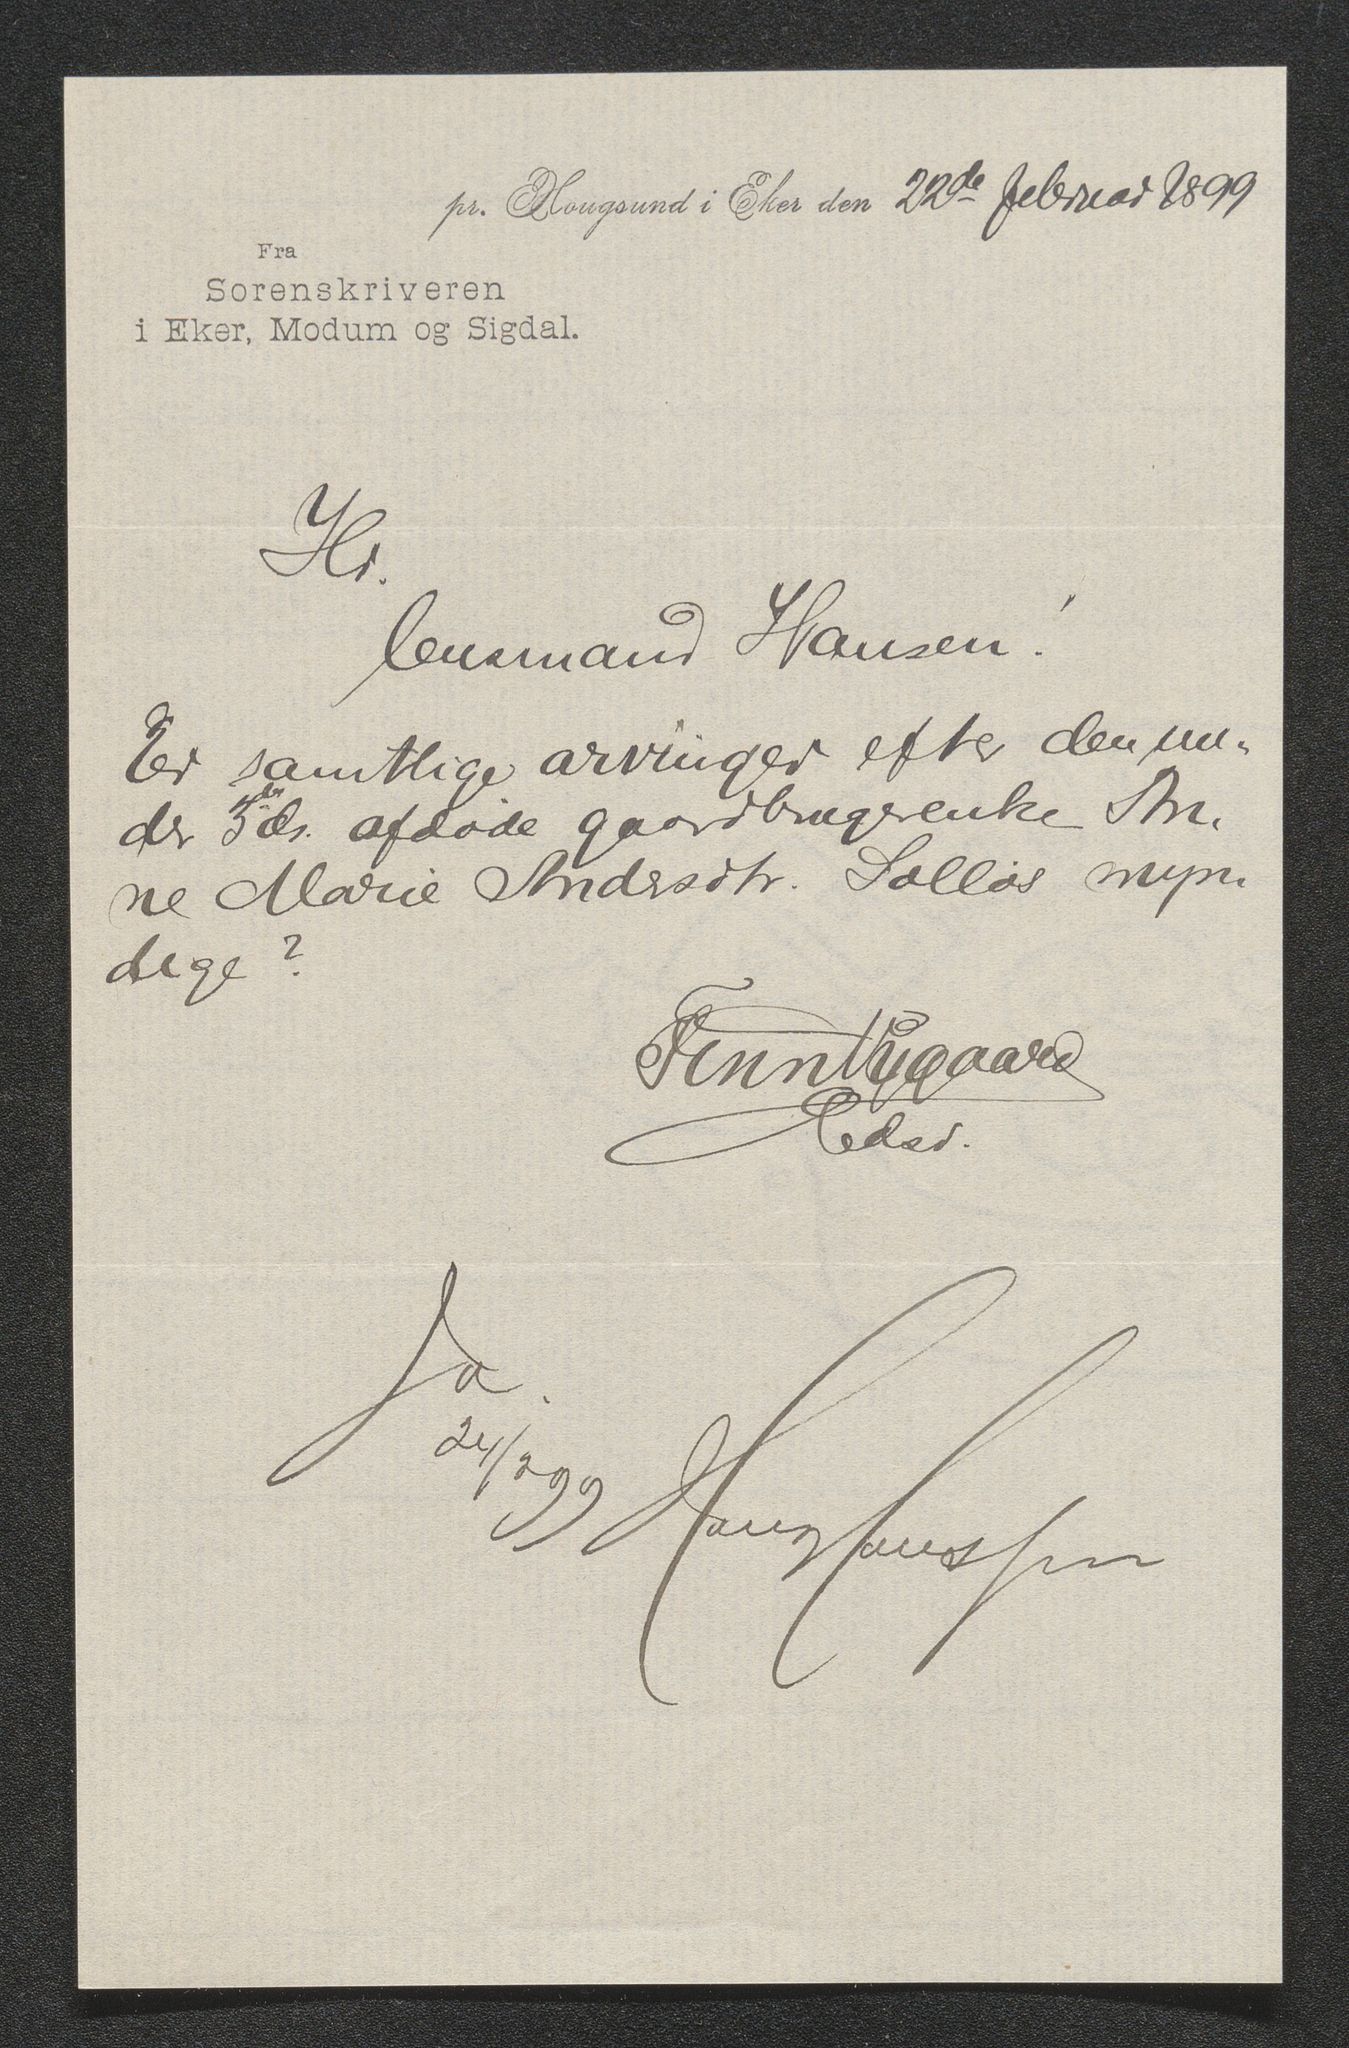 pr. Hougsund i Eker den 22de februar 1899
Fra
Sorenskriveren
i Eker, Modum og Sigdal.
Hr.
lensmand Hansen!
Er samtlige arvinger efter den un-
der 5te ds. afdøde gaardbrugerenke An-
ne Marie Andersdtr. Solløs myn-
dige?
Finn Nygaard
Edsv.
Ja.
24/2 99 Hans Hansen